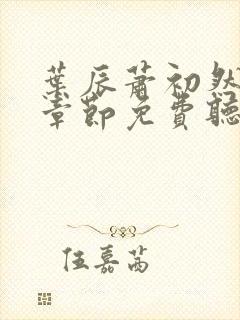 葉辰蕭初然
章節免費聽
伍嘉茜